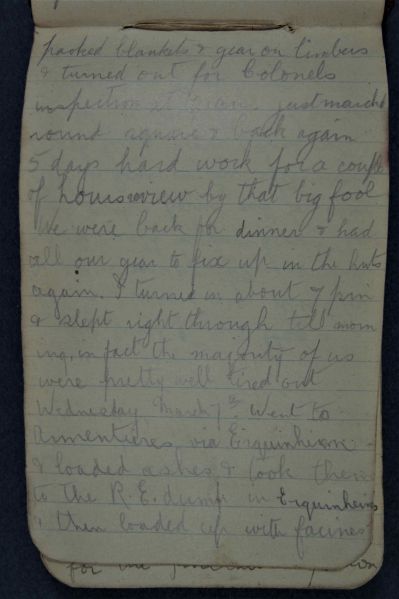 packed blankets & gear on limbers
& turned out for Colonels
inspection at 9 am. just marched
round square & back again
5 days hard work for a couple
of hours review by that big fool
We were back for dinner & had
all our gear to fix up in the huts
again. I turned in about 7 pm
& slept right through till morn
ing, in fact the majority of us
were pretty well tired out
Wednesday March 7th. Went to
Armentieres via Erquinhem
& loaded ashes & took them
to the R.E. dump in Erquinhem
& then loaded up with facines
for the